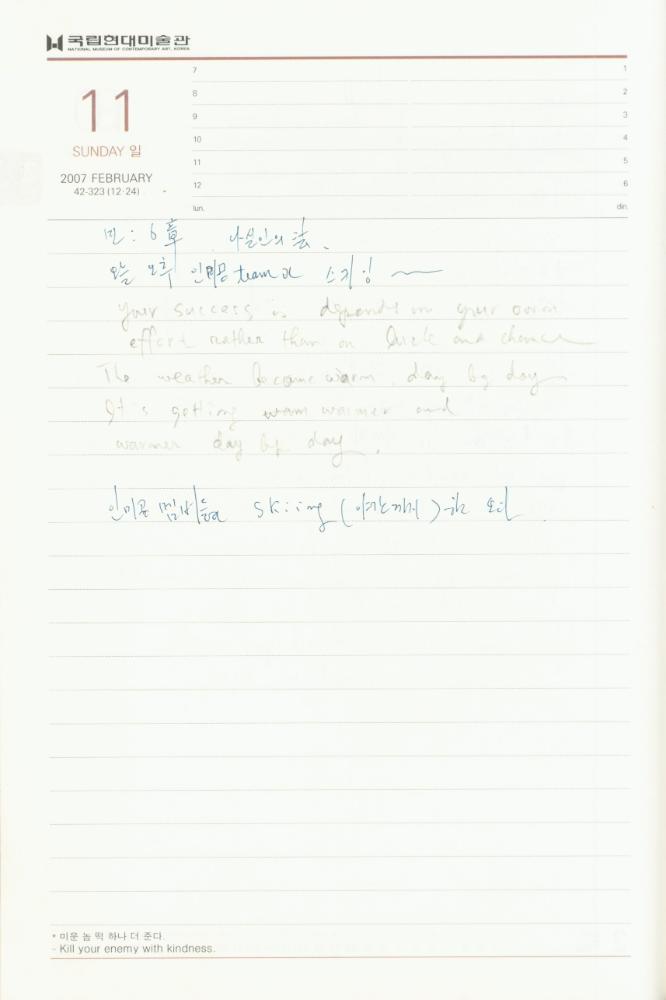 국립현대미술관
NATIONAL MUSEUM OF CONTEMPORARY ART, KOREA
11
SUNDAY 일
2007 FEBRUARY
42-323 (12·24)
7 1
8 2
9 3
10 4
11 5
12 6
lun. din.
민: 6章 나실인의 法.
오늘 오후 인미공 team과 스키잉
your success is depends on your own
effort rather than on luck and chance
The weather become warm, day by day
It's getting warm warmer and
warmer day by day.
인미공 멤버들과 skiing (야간까지)
* 미운 놈 떡 하나 더 준다.
- Kill your enemy with kindness.